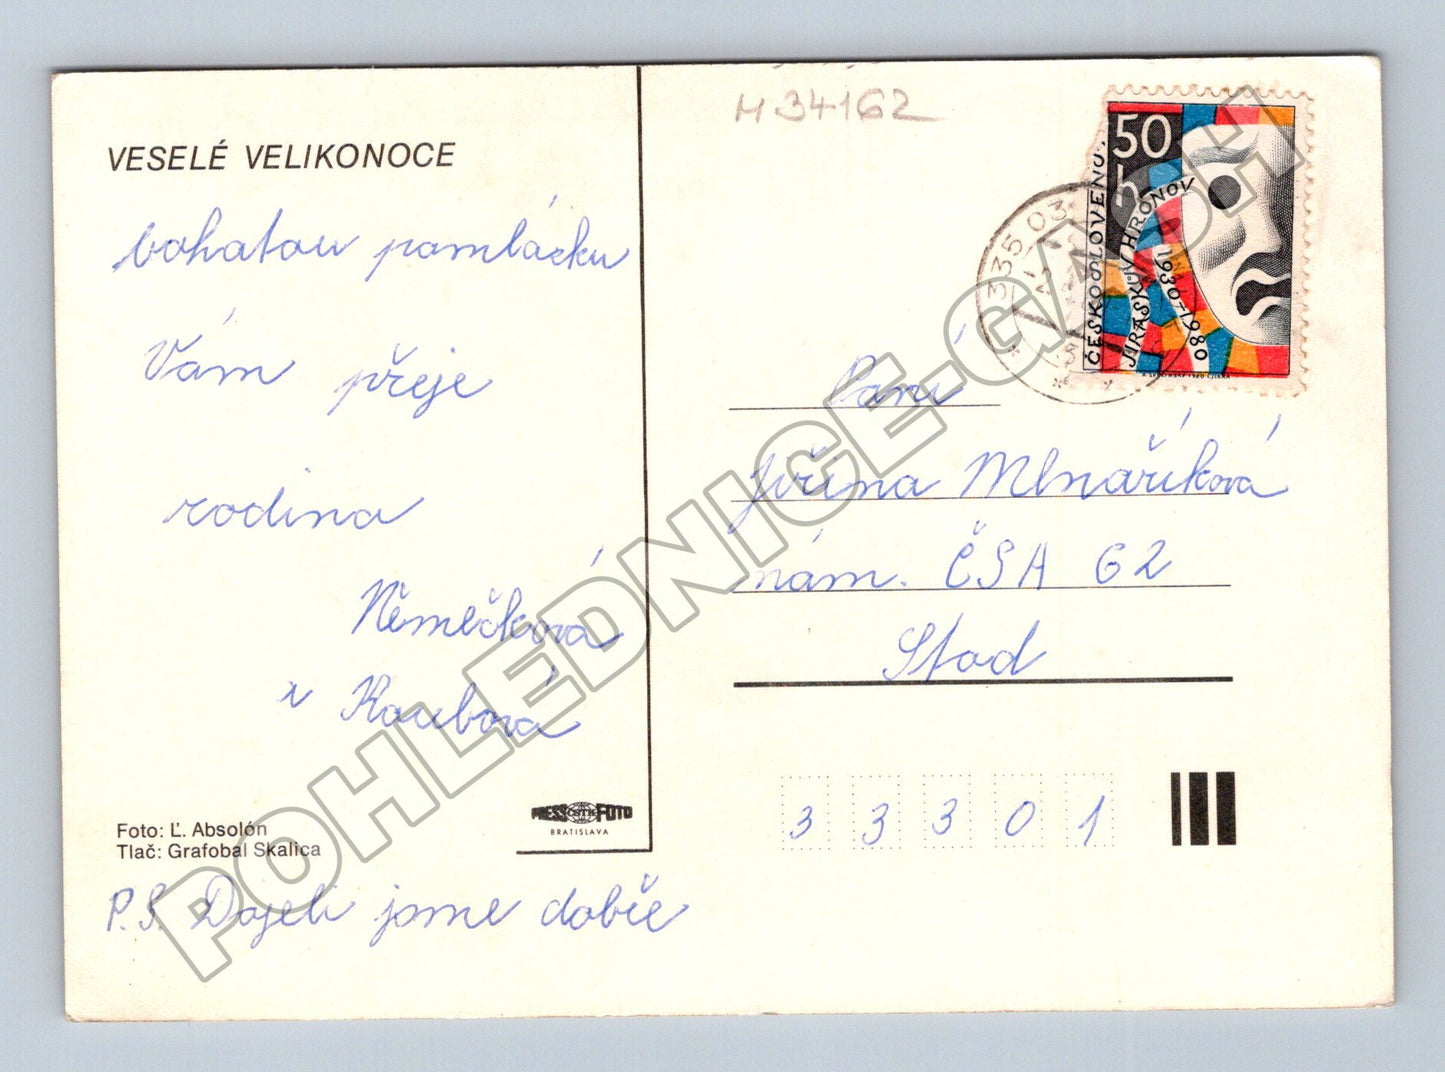 VESELÉ VELIKONOCE
bohatou pomlázku
Vám přeje
rodina
Němečková
a Koubová
Foto: Ľ. Absolón
Tlač: Grafobal Skalica
PRESSFOTO
ČSTK
BRATISLAVA
P.S. Dojeli jsme dobře
M 34162
50
h
ČESKOSLOVENSKO
JIRÁSKŮV HRONOV
1930-1980
335 03
Paní
Jiřina Mlnaříková
nám. ČSA 62
Stod
3 3 3 0 1
POHLEDNICE-GASH